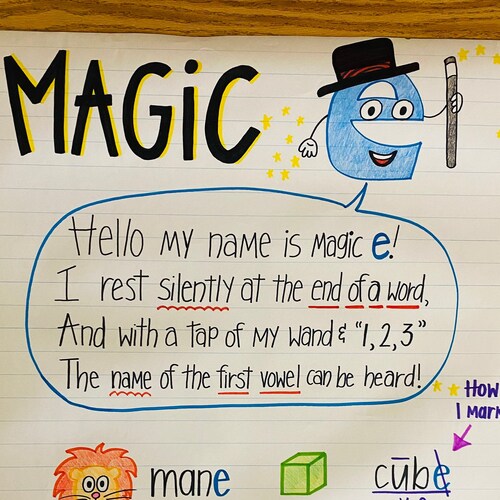 MAGiC
Hello MY name is Magic e!
I rest silently at the end of a word,
And with a tap of MY Wand & "1, 2, 3"
The name of the first vowel can be heard!
How
I mark
mane
cūbe